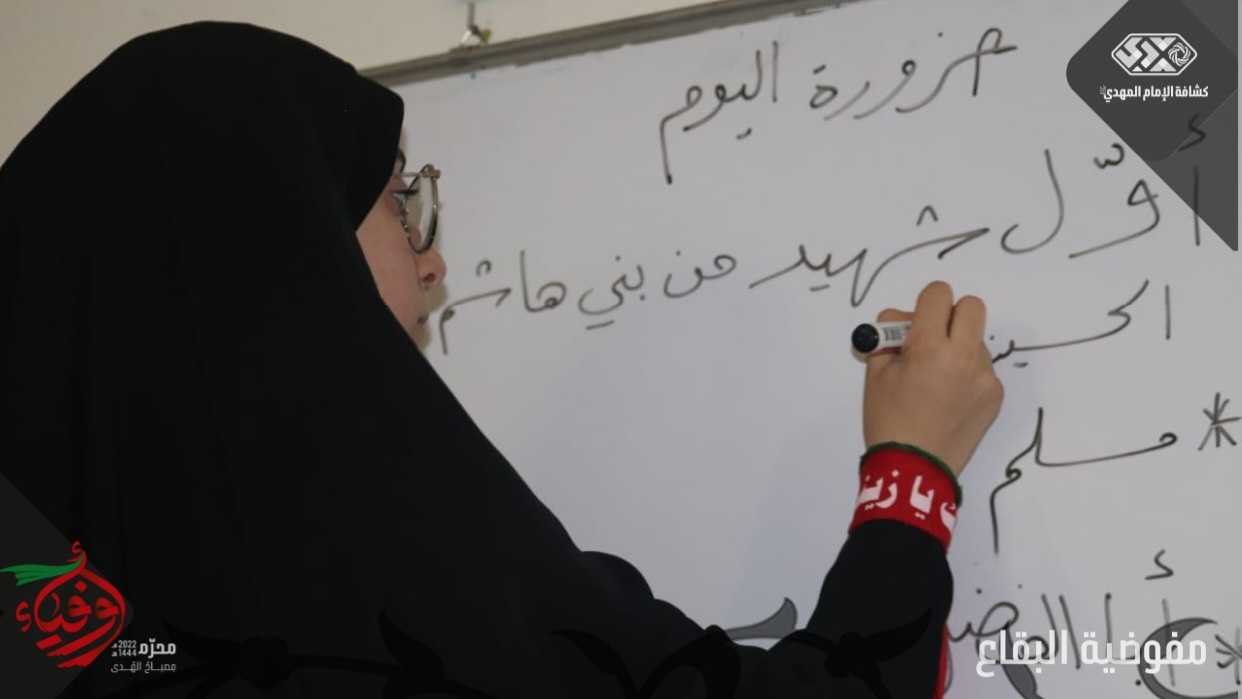 حزورة اليوم
أوّل شهيد من بني هاشم
الحسين
* مسلم
* أبا الفضل
يا زينب
كشافة الإمام المهدي
مفوضية البقاع
أوفياء
محرّم 2022 1444
مصباح الهدى